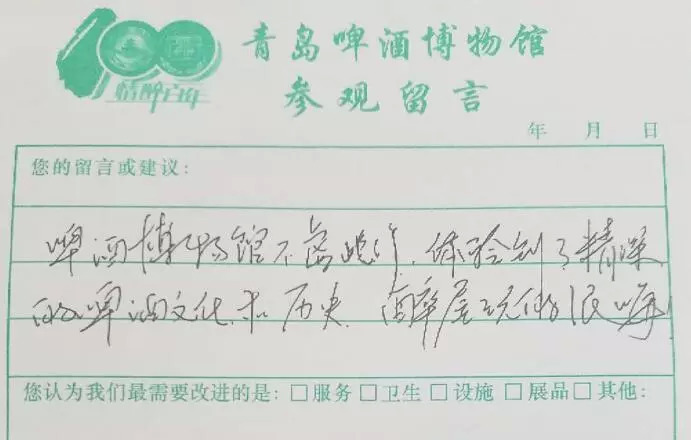 100
情醉百年
青岛啤酒博物馆
参观留言
年 月 日
您的留言或建议：
啤酒博物馆不虚此行，体验到了精深
的啤酒文化和历史，醉屋玩得很嗨！
您认为我们最需要改进的是：□服务□卫生□设施□展品□其他：